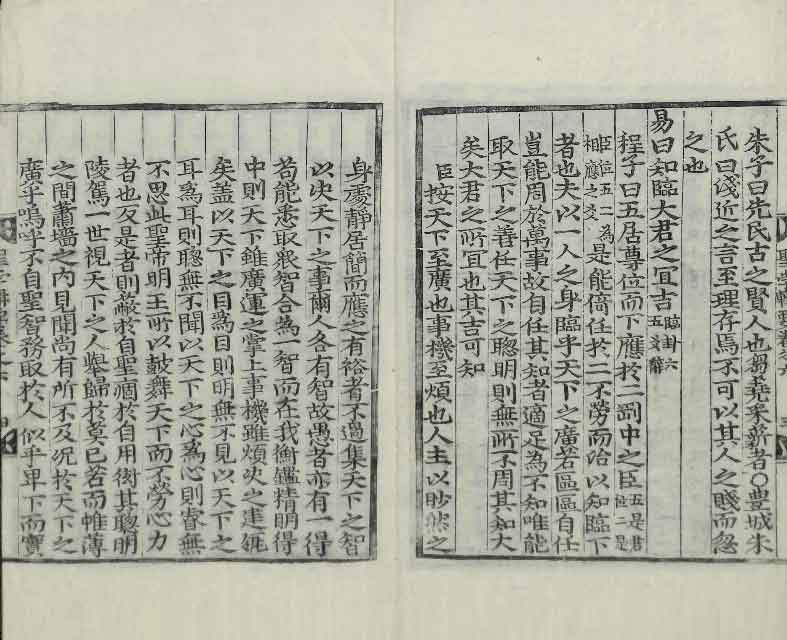 朱子曰先民古之賢人也芻蕘采薪者○豊城朱
氏曰淺近之言至理存焉不可以其人之賤而忽
之也
易曰知臨大君之宜吉臨卦六五爻辭
程子曰五居尊位而下應於二剛中之臣五是君位二是
臣位五二爲相應之爻是能倚任於二不勞而治以知臨下
者也夫以一人之身臨乎天下之廣若區區自任
豈能周於萬事故自任其知者適足爲不知唯能
取天下之善任天下之聰明則無所不周其知大
矣大君之所宜也其吉可知
臣按天下至廣也事機至煩也人主以眇然之
身處靜居簡而應之有裕者不過集天下之智
以決天下之事爾人各有智故愚者亦有一得
苟能悉取衆智合爲一智而在我衡鑑精明得
中則天下雖廣運之掌上事機雖煩決之建瓴
矣蓋以天下之目爲目則明無不見以天下之
耳爲耳則聰無不聞以天下之心爲心則睿無
不思此聖帝明王所以鼓舞天下而不勞心力
者也反是者則蔽於自聖痼於自用衒其聰明
陵駕一世視天下之人擧歸於莫已若而帷薄
之間蕭墻之內見聞尚有所不及況於天下之
廣乎嗚呼不自聖智務取於人似乎卑下而實